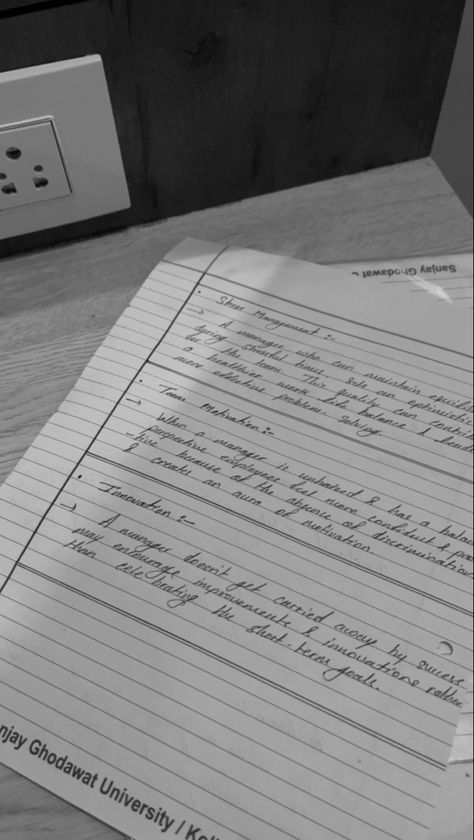 Sanjay Ghodawat
• Stress Management :-
→ A manager who can maintain
during stressful times, sets an optimistic
for the team. This quality can
a healthier work life balance & leads
more effective problem-solving.
• Team Motivation:-
→ When a manager is unbiased & has a
perspective employees feel more confident &
-tive because of the absence of discrimination
& creates an aura of motivation.
• Innovation :-
→ A manager doesn't get carried away by success
may encourage improvements & innovations rather
than celebrating the short-term goals.
njay Ghodawat University / Kol